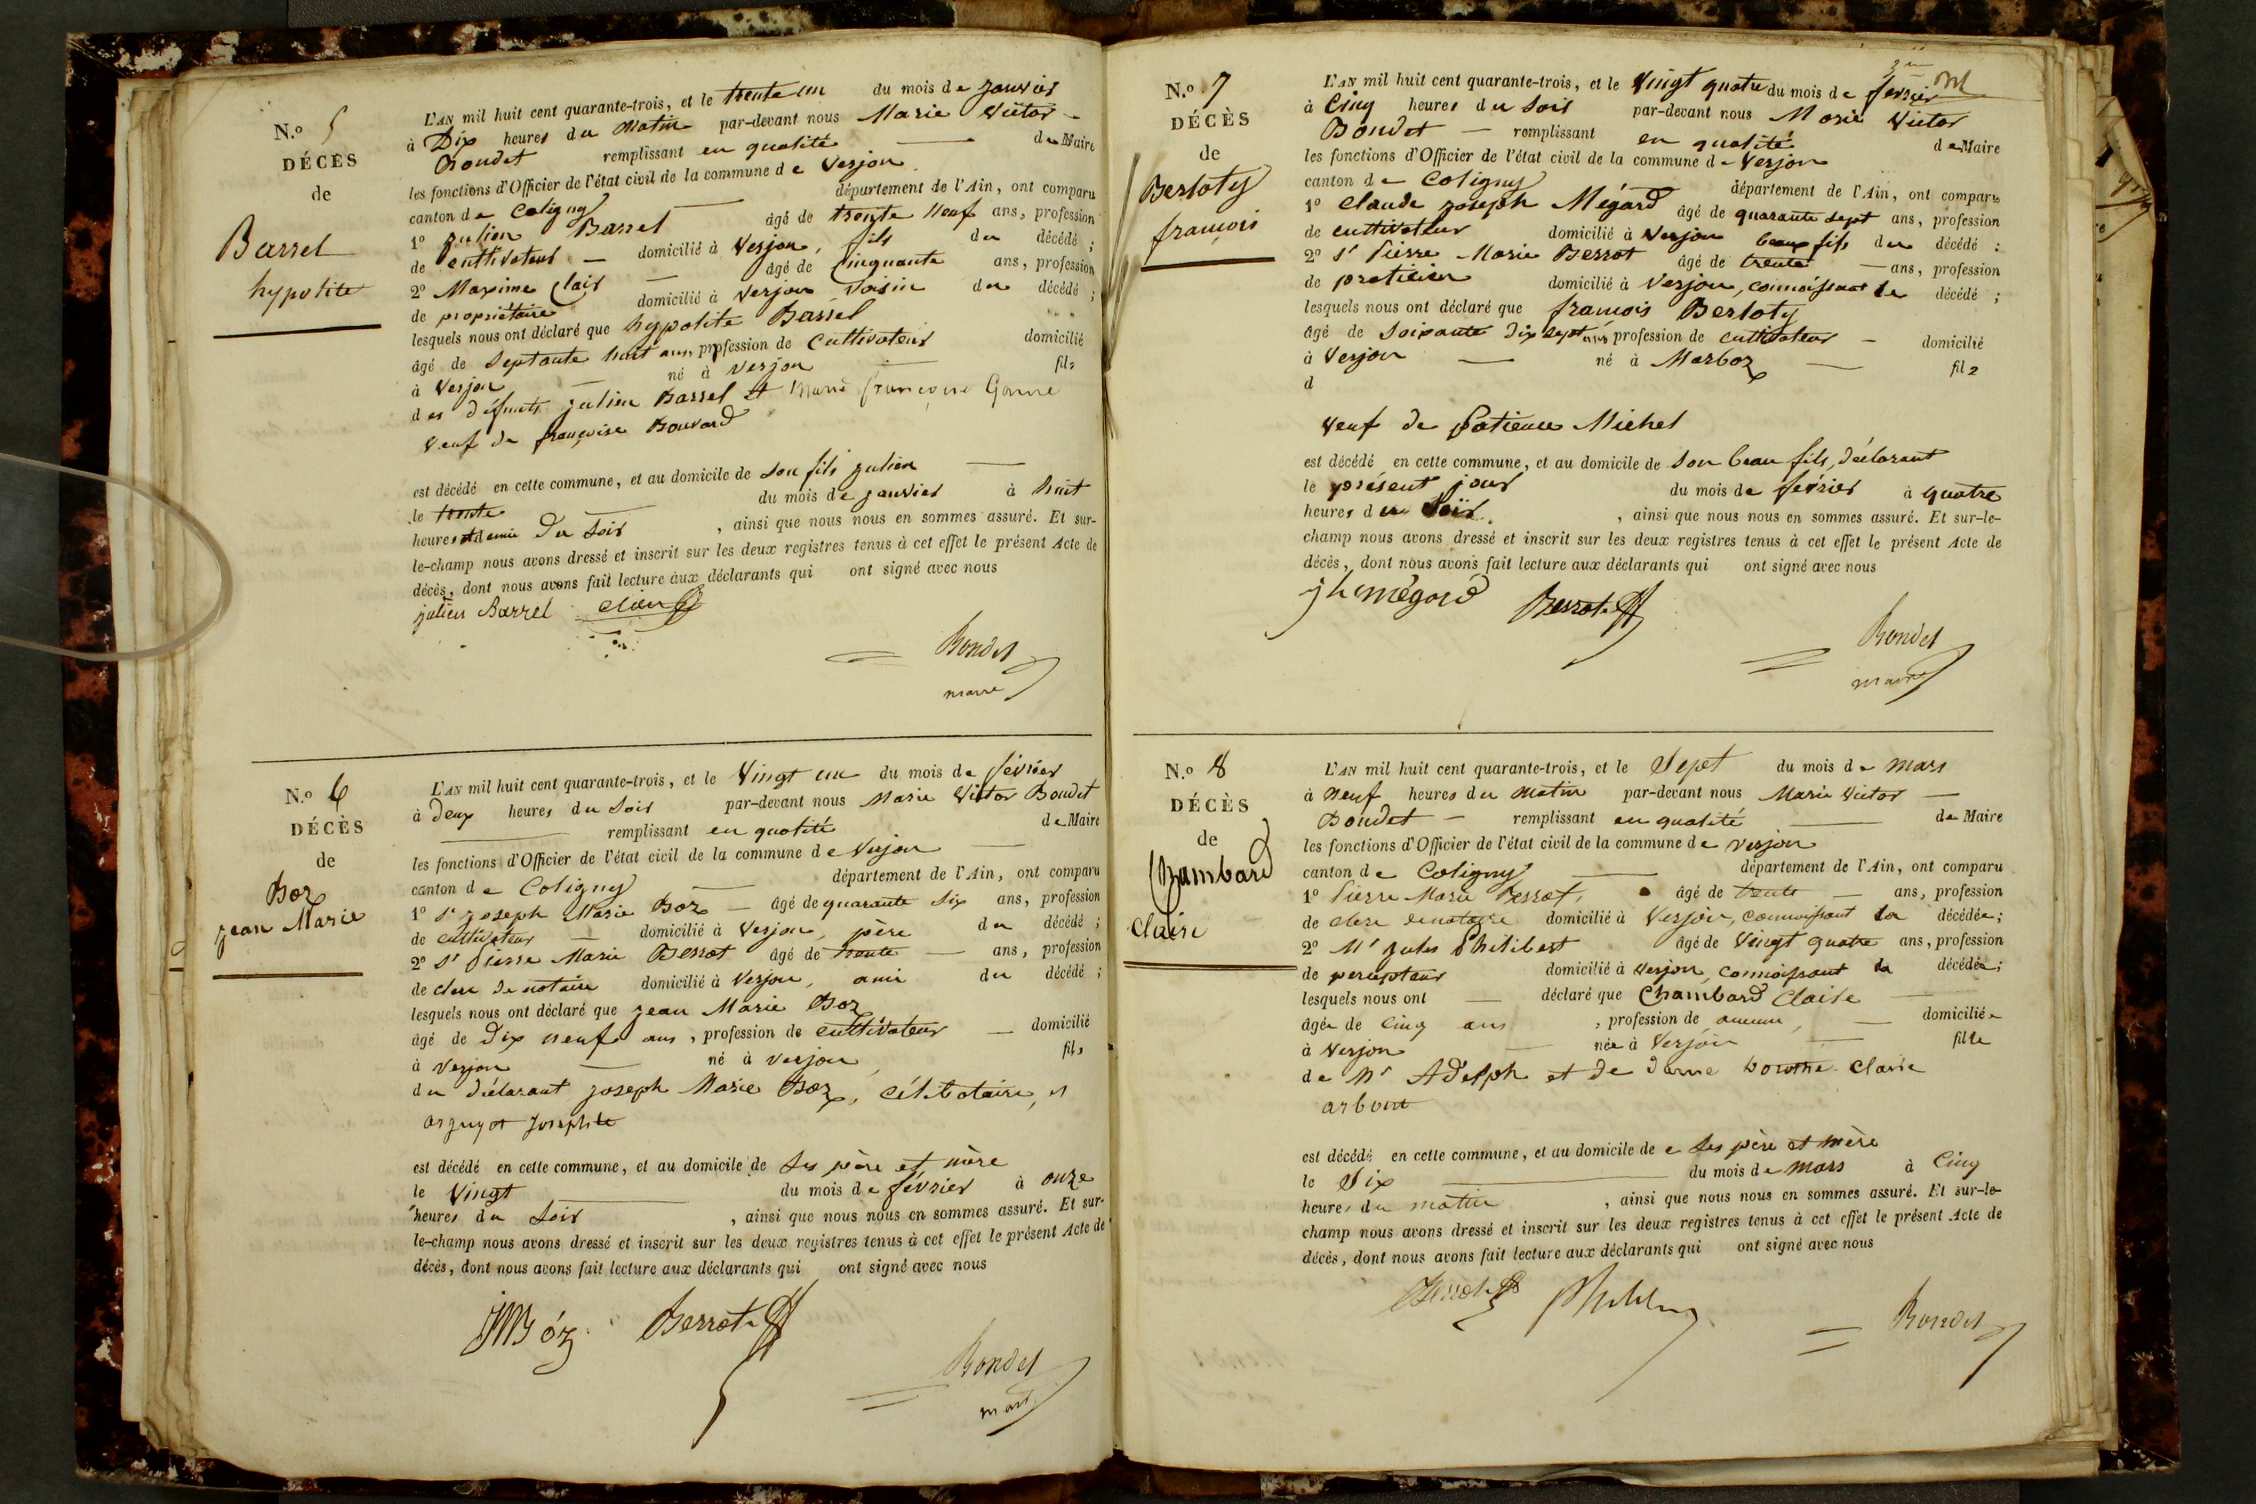 N.o 5
DÉCÈS
de
Barrel
hypolite
L'AN mil huit cent quarante-trois, et le trente un du mois de janvier
à Dix heures du Matin par-devant nous Marie Victor
Bondet remplissant en qualité de Maire
les fonctions d'Officier de l'état civil de la commune de Verjon
canton de Coligny département de l'Ain, ont comparu
1o julien Barrel âgé de trente neuf ans, profession
de cultivateur domicilié à Verjon, fils du décédé ;
2o Maxime Clair âgé de Cinquante ans, profession
de propriétaire domicilié à Verjon Voisin du décédé ;
lesquels nous ont déclaré que hypolite Barrel
âgé de Septante huit ans, profession de Cultivateur domicilié
à Verjon né à Verjon fils
des défunts julien Barrel et Marie françoise
Veuf de françoise Bouvard
est décédé en cette commune, et au domicile de Son fils julien
le trente du mois de janvier à huit
heures et demie Du Soir , ainsi que nous nous en sommes assuré. Et sur-
le-champ nous avons dressé et inscrit sur les deux registres tenus à cet effet le présent Acte de
décès, dont nous avons fait lecture aux déclarants qui ont signé avec nous
julien Barrel
Bondet
maire
N.o 6
DÉCÈS
de
Boz
jean Marie
L'AN mil huit cent quarante-trois, et le Vingt un du mois de février
à Deux heures du Soir par-devant nous Marie Victor Bondet
remplissant en qualité de Maire
les fonctions d'Officier de l'état civil de la commune de Verjon
canton de Coligny département de l'Ain, ont comparu
1o Sr joseph Marie Boz âgé de quarante Six ans, profession
de cultivateur domicilié à Verjon, père du décédé ;
2o Sr Pierre Marie Berrot âgé de trente ans, profession
de clerc de notaire domicilié à Verjon, ami du décédé ;
lesquels nous ont déclaré que jean Marie Boz
âgé de Dix neuf ans, profession de cultivateur domicilié
à Verjon né à Verjon fils
du déclarant joseph Marie Boz, Célibataire, et
est décédé en cette commune, et au domicile de Ses père et mère
le Vingt du mois de février à onze
heures du Soir , ainsi que nous nous en sommes assuré. Et sur-
le-champ nous avons dressé et inscrit sur les deux registres tenus à cet effet le présent Acte de
décès, dont nous avons fait lecture aux déclarants qui ont signé avec nous
JMBóz Berrot
Bondet
maire
N.o 7
DÉCÈS
de
Berloty
françois
L'AN mil huit cent quarante-trois, et le Vingt quatre du mois de février
à Cinq heures du Soir par-devant nous Marie Victor
Bondet remplissant en qualité de Maire
les fonctions d'Officier de l'état civil de la commune de Verjon
canton de Coligny département de l'Ain, ont comparu
1o Claude joseph Mégard âgé de quarante sept ans, profession
de cultivateur domicilié à Verjon beau fils du décédé ;
2o Sr Pierre Marie Berrot âgé de trente ans, profession
de praticien domicilié à Verjon, connaissant le décédé ;
lesquels nous ont déclaré que françois Berloty
âgé de Soixante Dix Sept ans, profession de cultivateur domicilié
à Verjon né à Marboz fils
d
Veuf de Patience Michel
est décédé en cette commune, et au domicile de Son beau fils, déclarant
le présent jour du mois de février à quatre
heures du Soir , ainsi que nous nous en sommes assuré. Et sur-le-
champ nous avons dressé et inscrit sur les deux registres tenus à cet effet le présent Acte de
décès, dont nous avons fait lecture aux déclarants qui ont signé avec nous
jh mégard Berrot
Bondet
maire
N.o 8
DÉCÈS
de
Chambard
Claire
L'AN mil huit cent quarante-trois, et le Sept du mois de mars
à Neuf heures du Matin par-devant nous Marie Victor
Bondet remplissant en qualité de Maire
les fonctions d'Officier de l'état civil de la commune de Verjon
canton de Coligny département de l'Ain, ont comparu
1o Pierre Marie Berrot, âgé de trente ans, profession
de clerc de notaire domicilié à Verjon, connaissant la décédée;
2o Mr jules Philibert âgé de Vingt quatre ans, profession
de percepteur domicilié à Verjon, connaissant la décédée;
lesquels nous ont déclaré que Chambard Claire
âgée de Cinq ans , profession de aucune, domiciliée
à Verjon née à Verjon fille
de Mr Adolph et de Dame Claire
est décédé en cette commune, et au domicile de Ses père et mère
le Six du mois de Mars à Cinq
heures du matin , ainsi que nous nous en sommes assuré. Et sur-le-
champ nous avons dressé et inscrit sur les deux registres tenus à cet effet le présent Acte de
décès, dont nous avons fait lecture aux déclarants qui ont signé avec nous
Berrot
Bondet